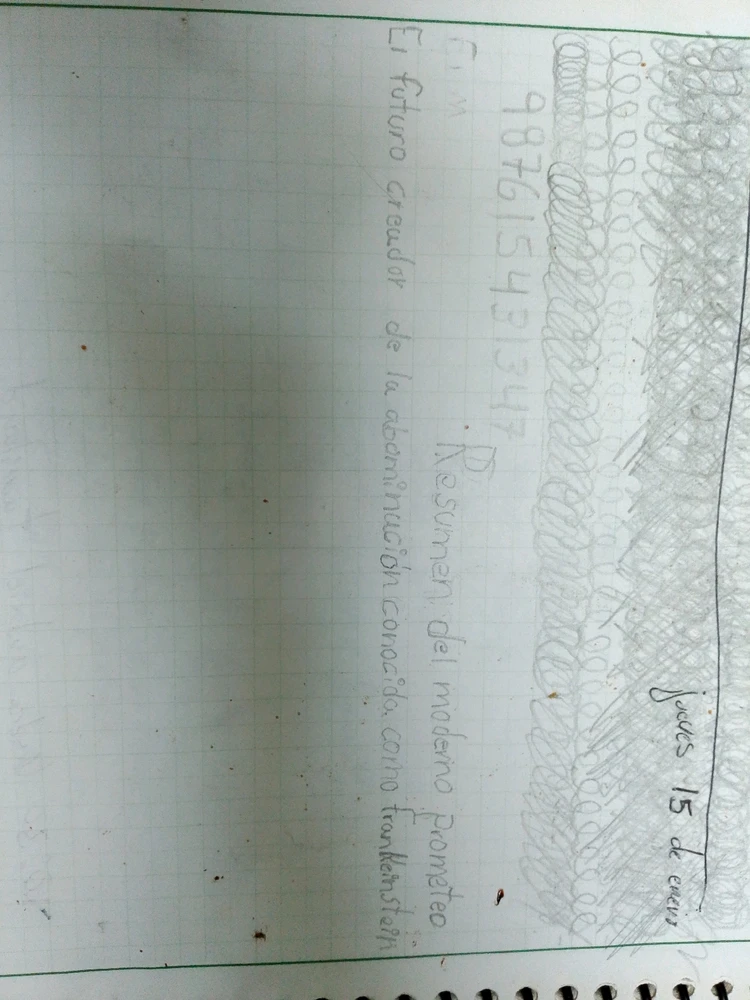 jueves 15 de enero
987615431347
Resumen del moderno prometeo
El futuro creador de la abominación conocida como frankeinstein